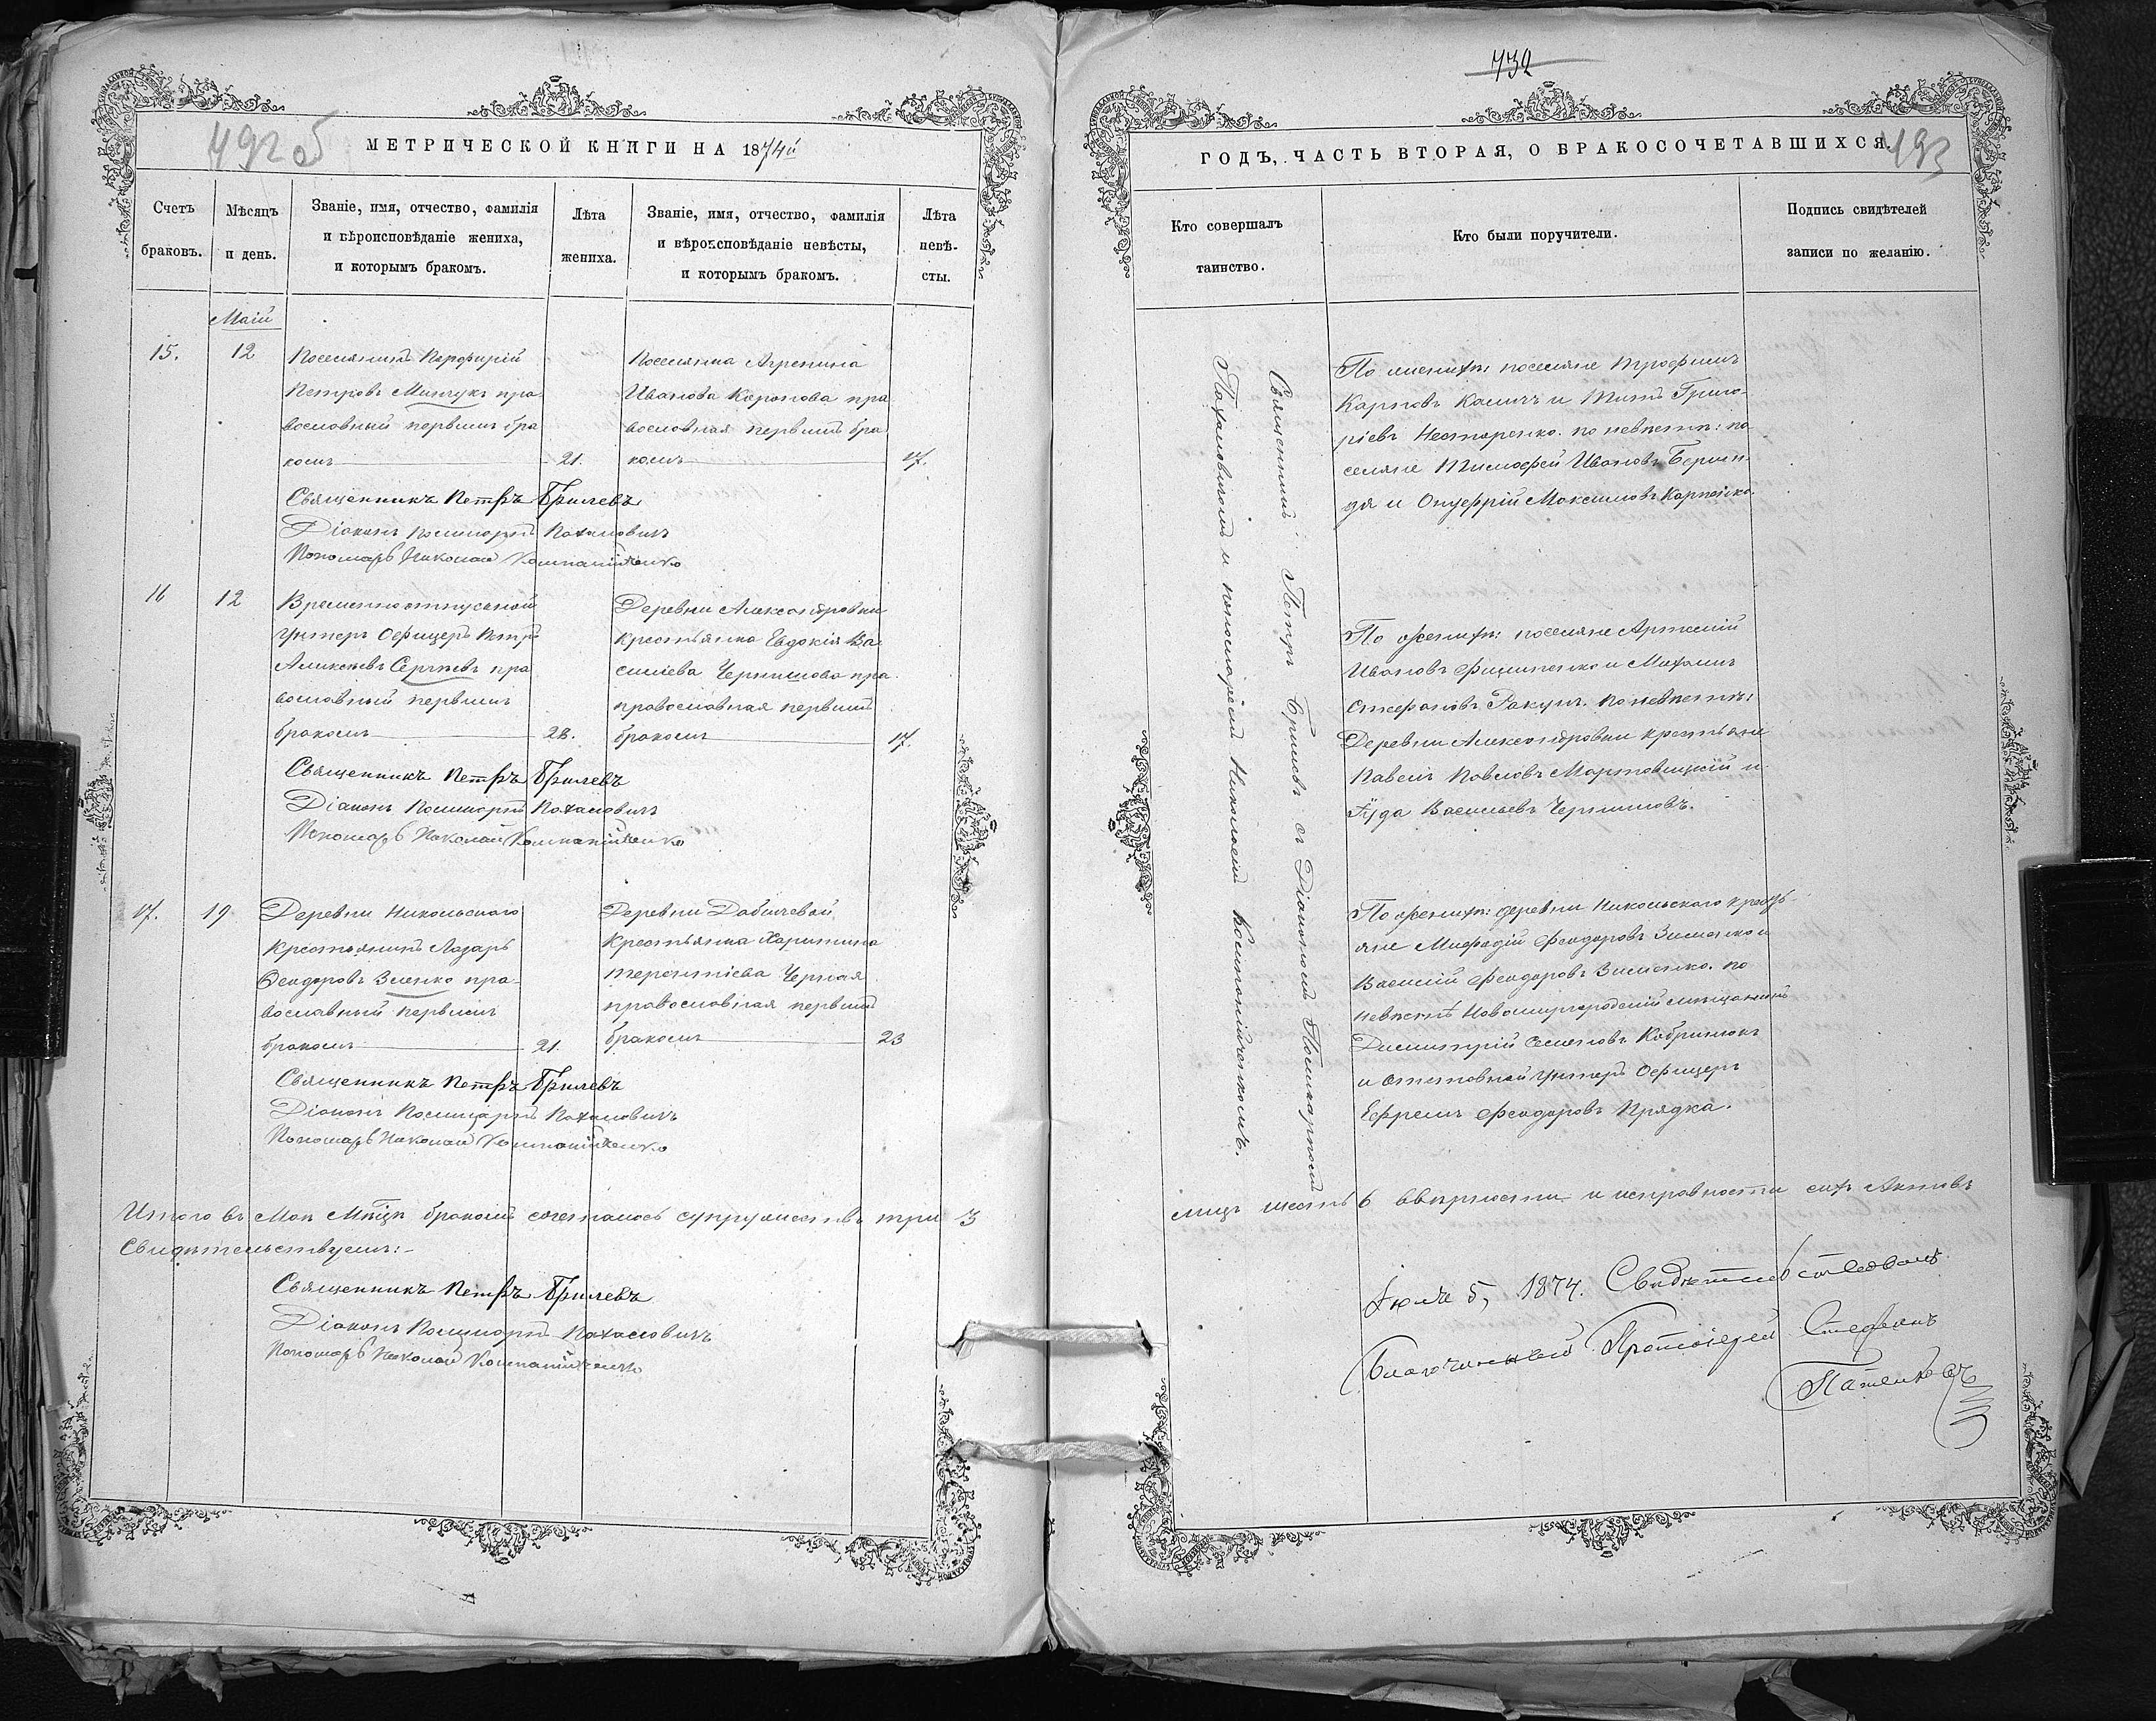 492 об
МЕТРИЧЕСКОЙ КНИГИ НА 1874й
Счетъ браковъ.
Мѣсяцъ и день.
Званіе, имя, отчество, фамилія
и вѣроисповѣданіе жениха,
и которымъ бракомъ.
Лѣта жениха.
Званіе, имя, отчество, фамилія
и вѣроисповѣданіе невѣсты,
и которымъ бракомъ.
Лѣта невѣ-
сты.
Маій
15.
12
Поселянинъ Порфирій
Петровъ Минчукъ пра
вославный первымъ бра
комъ
21.
Поселянка Агрепина
Иванова Коропова пра
вославная первымъ бра
комъ
17.
Священникъ Петръ Брилевъ
Діаконъ Поликарпъ Пахаловичъ
Пономарь Николай Компанійченко
16
12
Временноотпускной
Унтеръ Офицеръ Петръ
Алексѣевъ Сергѣевъ пра
вославный первымъ
бракомъ
28.
Деревни Александровки
крестьянка Евдокія Ва
силіева Чернышова пра
православная первымъ
бракомъ
17.
Священникъ Петръ Брилевъ
Діаконъ Поликарпъ Пахаловичъ
Пономарь Николай Компанійченко
17.
19
Деревни Никольского
Крестьянинъ Лазарь
Феодоровъ Зименко пра-
вославный первымъ
бракомъ
21.
Деревни Добычевой
Крестьянка Харитина
Терентіева Черная
православная первымъ
бракомъ
23
Священникъ Петръ Брилевъ
Діаконъ Поликарпъ Пахаловичъ
Пономарь Николай Компанійченко
Итого въ Маѣ Мѣсцѣ бракомъ сочеталось супружествъ три 3
Свидѣтельствуемъ:
Священникъ Петръ Брилевъ
Діаконъ Поликарпъ Пахаловичъ
Пономарь Николай Компанійченко
732
ГОДЪ, ЧАСТЬ ВТОРАЯ, О БРАКОСОЧЕТАВШИХСЯ.
493
Кто совершалъ
таинство.
Кто были поручители.
Подпись свидѣтелей
записи по желанію.
Священникъ: Петръ Брилевъ съ Діакономъ Поликарпомъ
Пахаловичомъ и пономаремъ Николаемъ Компанійченкомъ.
По женихѣ: поселяне Трофимъ
Карповъ Каличъ и Титъ Григо-
ріевъ Нестеренко. по невѣстѣ: по
селяне Тимофей Ивановъ
и Онуфрій Максимовъ Карпенко.
По женихѣ: поселяне Артемій
Ивановъ Филипенко и Михаилъ
Стефановъ Ракулъ. По невѣстѣ:
Деревни Александровки крестьяне
Павелъ Павловъ Мартовицкій и
Іуда Васильевъ Чернышовъ.
По женихѣ: деревни Никольского кресть-
яне Мефодій Феодоровъ Зименко и
Василій Феодоровъ Зименко. по
невѣстѣ Новомиргородскій мещанинъ
Димитрій Семеновъ Кобринюкъ
и отставной Унтеръ Офицеръ
Ефремъ Феодоровъ Прядка.
лицъ шесть 6 ввѣрности и исправности сихъ Актовъ
Іюля 5, 1874. Свидѣтельствовалъ
Благочинный Протоіерей Стефанъ